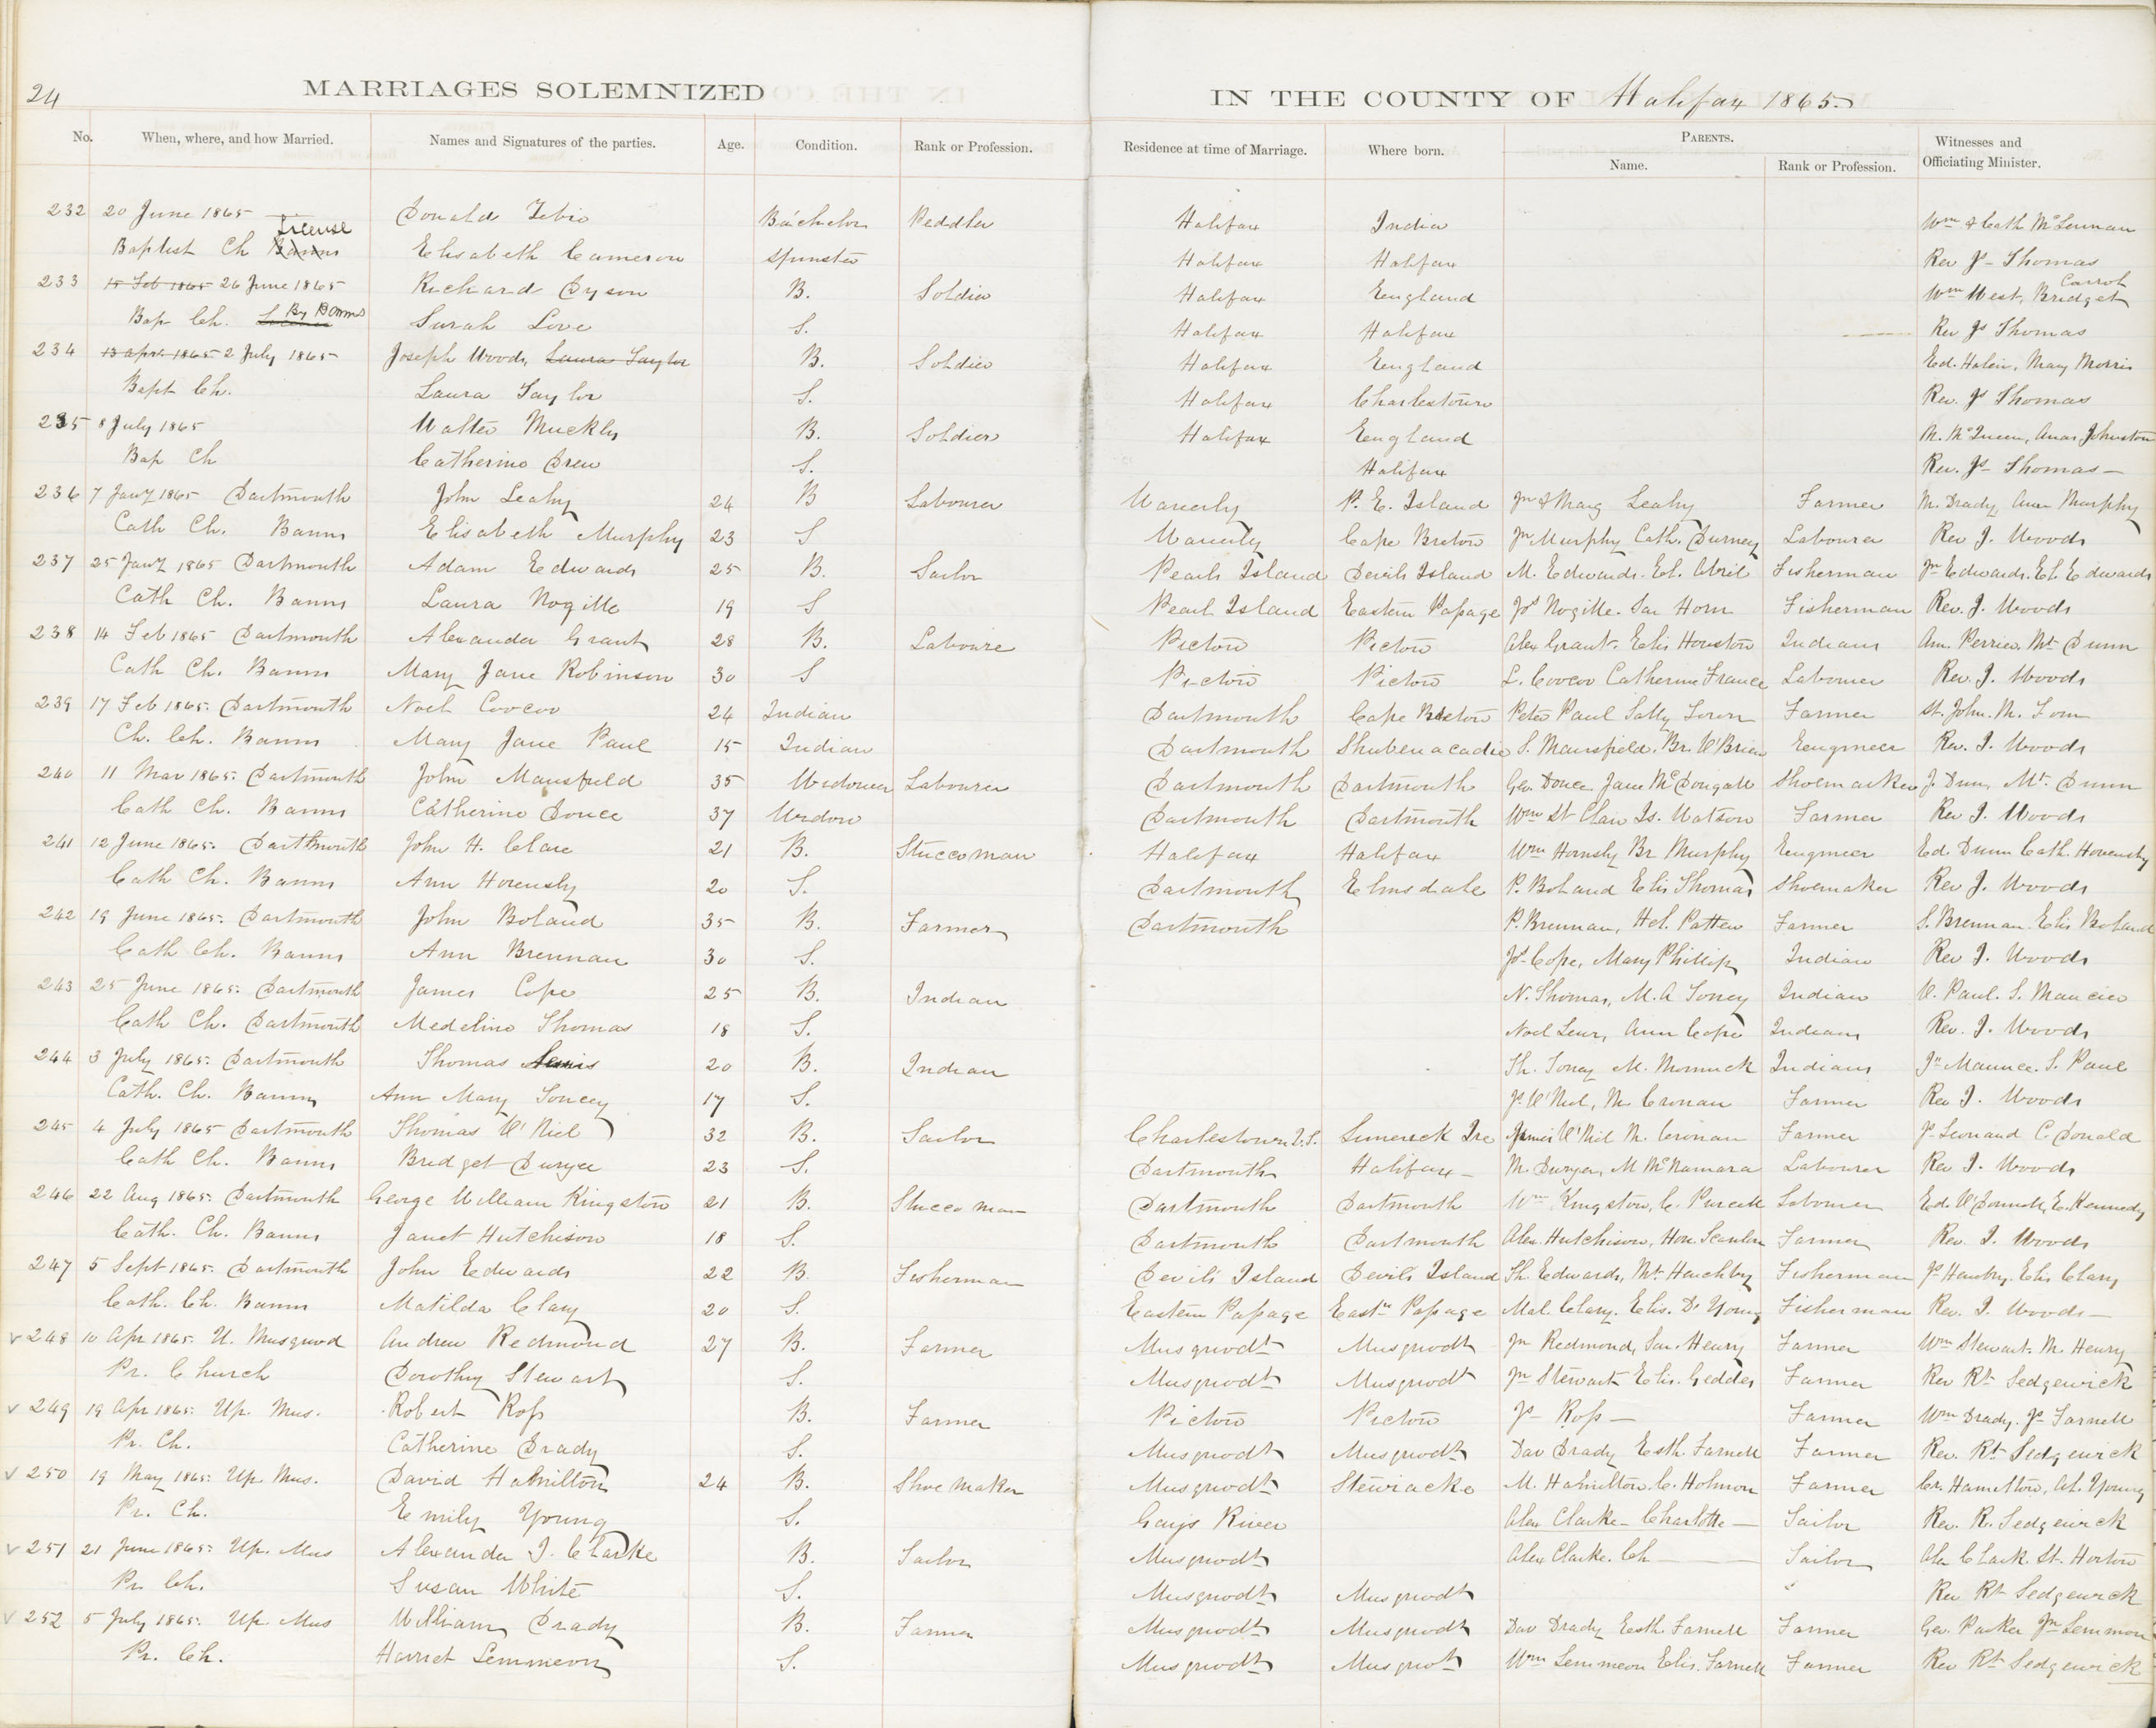 24
MARRIAGES SOLEMNIZED IN THE COUNTY OF Halifax 1865
No. When, where, and how Married. Names and Signatures of the parties. Age. Condition. Rank or Profession. Residence at time of Marriage. Where born. PARENTS. Witnesses and Officiating Minister.
Name. Rank or Profession.
232 20 June 1865 Donald Bachelor Peddler Halifax India Wm & Cath McLennan
Baptist Ch Banns License Elisabeth Cameron Spinster Halifax Halifax Rev Js Thomas
233 15 Feb 1865 26 June 1865 Richard Dyson B. Soldier Halifax England Wm West, Bridget Carrol
Bap Ch. By Banns Sarah Love S. Halifax Halifax Rev Js Thomas
234 13 Apr. 1865 2 July 1865 Joseph Woods, Laura Taylor B. Soldier Halifax England Ed. Halin, Mary Morris
Bapt Ch. Laura Taylor S. Halifax Charlestown Rev. Js Thomas
235 8 July 1865 Walter Muckly B. Soldier Halifax England M. McQueen, Johnston
Bap Ch Catherine Drew S. Halifax Rev. Js Thomas
236 7 Jany 1865 Dartmouth John Leahy 24 B Labourer Waverly P. E. Island Jn & Marg Leahy Farmer M. Brady, Ann Murphy
Cath Ch. Banns Elisabeth Murphy 23 S Waverly Cape Breton Jn Murphy Cath. Durney Labourer Rev J. Woods
237 25 Jany 1865 Dartmouth Adam Edwards 25 B. Sailor Pearls Island Devils Island M. Edwards. El. Abril Fisherman Jn Edwards. El. Edwards
Cath Ch. Banns Laura Nogille 19 S Pearl Island Eastern Papage Jos Nogille. Sar Horn Fisherman Rev. J. Woods
238 14 Feb 1865 Dartmouth Alexander Grant 28 B. Laboure Pictou Pictou Alex Grant. Elis Houston Indians Ann Perrier, Mt Dunn
Cath Ch. Banns Mary Jane Robinson 30 S Pictou Pictou L. Coocoo Catherine France Labourer Rev. J. Woods
239 17 Feb 1865. Dartmouth Noel Coocoo 24 Indian Dartmouth Cape Breton Peter Paul Sally Farmer St. John. M. Tom
Ch. Ch. Banns Mary Jane Paul 15 Indian Dartmouth Shubenacadie S. Mansfield. Br. O'Brien Engineer Rev. J. Woods
240 11 Mar 1865. Dartmouth John Mansfield 35 Widower Labourer Dartmouth Dartmouth Geo. Douce Jane McDougall Shoemarker J. Dunn Mt. Dunn
Cath Ch. Banns Catherine Douce 37 Widow Dartmouth Dartmouth Wm St Clair Is. Watson Farmer Rev J. Woods
241 12 June 1865. Dartmouth John H. Clare 21 B. Stucco man Halifax Halifax Wm Hornsby Br Murphy Engineer Ed. Dunn Cath. Horensby
Cath Ch. Banns Ann Horensby 20 S. Dartmouth Elmsdale P. Boland Elis Thomas Shoemaker Rev J. Woods
242 19 June 1865. Dartmouth John Boland 35 B. Farmer Dartmouth P. Brennan, Hel. Patten Farmer S. Brennan. Elis Boland
Cath Ch. Banns Ann Brennan 30 S. Js. Cope, Mary Phillip Indian Rev J. Woods
243 25 June 1865. Dartmouth James Cope 25 B. Indian N. Thomas, M. A Toney Indian V. Paul. S. Maucier
Cath Ch. Dartmouth Medeline Thomas 18 S. Noel Lewis, Ann Cope Indians Rev. J. Woods
244 3 July 1865. Dartmouth Thomas Lewis 20 B. Indian Th. Toney M. Mornuck Indians Jn Maurice. S. Paul
Cath. Ch. Banns Ann Mary Toncey 17 S. Js. O'Niel, M. Cronan Farmer Rev J. Woods
245 4 July 1865 Dartmouth Thomas O'Niel 32 B. Sailor Charlestown U.S. Limerick Ire James O'Niel M. Cronan Farmer Js. Leonard C. Donald
Cath Ch. Banns Bridget Duryea 23 S. Dartmouth Halifax M. Duryer, M McNamara Labourer Rev J. Woods
246 22 Aug 1865. Dartmouth George William Kingston 21 B. Stucco man Dartmouth Dartmouth Wm Kingston, C. Purcell Labourer Ed. O'Donnell, E. Kennedy
Cath. Ch. Banns Janet Hutchison 18 S. Dartmouth Dartmouth Alex. Hutchison, Hon. Scanlen Farmer Rev. J. Woods
247 5 Sept 1865. Dartmouth John Edwards 22 B. Fisherman Devils Island Devils Island Th. Edwards, Mt. Henchby Fisherman Elis Clary
Cath. Ch. Banns Matilda Clary 20 S. Eastern Papage Eastn Papage Mal. Clary. Elis. De Young Fisherman Rev. J. Woods
v 248 10 Apr 1865. U. Musquod Andrew Redmond 27 B. Farmer Musquodt Musquodt Jn Redmond, Sar. Henry Farmer Wm Stewart. M. Henry
Pr. Church Dorothy Stewart S. Musquodt Musquodt Jn Stewart Elis. Geddes Farmer Rev Rt Sedgewick
v 249 19 Apr 1865. Up. Mus. Robert Ross B. Farmer Pictou Pictou Js Ross Farmer Wm Brady. Js Farnell
Pr. Ch. Catherine Brady S. Musquodt Musquodt Dav Brady Esth Farnell Farmer Rev. Rt Sedgewick
v 250 19 May 1865. Up. Mus. David Hamilton 24 B. Shoe Maker Musquodt Stewiacke M. Hamilton. C. Holmon Farmer Cr. Hamilton, Al. Young
Pr. Ch. Emily Young S. Gays River Alex Clarke Charlotte Tailor Rev. R. Sedgewick
v 251 21 June 1865. Up. Mus Alexander J. Clarke B. Tailor Musquodt Alex Clarke. Ch Tailor Alx Clark. St. Horton
Pr. Ch. Susan White S. Musquodt Musquodt " Rev Rt Sedgewick
v 252 5 July 1865. Up Mus William Brady B. Farmer Musquodt Musquodt Dav Brady Esth. Farnell Farmer Geo. Parker Jn Lemmon
Pr. Ch. Harriet Lemmeon S. Musquodt Musquot Wm Lemmeon Elis. Farnell Farmer Rev Rt Sedgewick